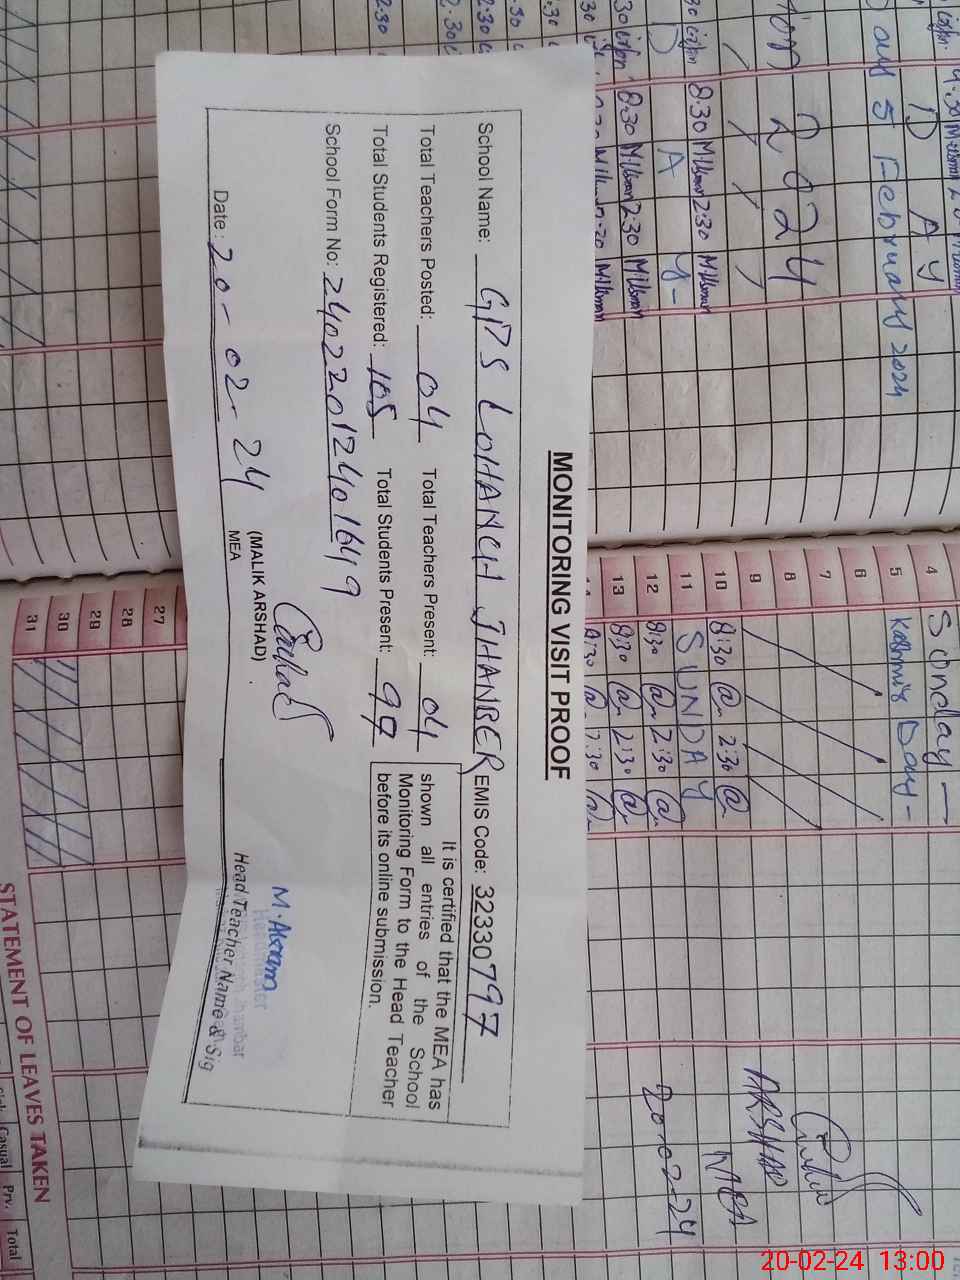 MONITORING VISIT PROOF
School Name: GPS LOHANCH JHANBER EMIS Code: 32330797
Total Teachers Posted: 04 Total Teachers Present: 04
Total Students Registered: 105 Total Students Present: 97
It is certified that the MEA has
shown all entries of the School
Monitoring Form to the Head Teacher
before its online submission.
School Form No: 24022012401649
Date: 20-02-24
(MALIK ARSHAD)
MEA
M. Akram
Headmaster
Head Teacher Name & Sig
D A Y
5 February 2024
2024
8:30 M.Usman 2:30 M.Usman
A Y
8:30 M.Usman 2:30 M.Usman
4
5
6
7
8
9
10
11
12
13
27
28
29
30
31
Sunday
Kashmir Day
8:30 2:30
SUNDAY
8:30 2:30
8:30 2:30
8:30
ARSHAD
MEA
20-02-24
STATEMENT OF LEAVES TAKEN
Casual Prv. Total
20-02-24 13:00